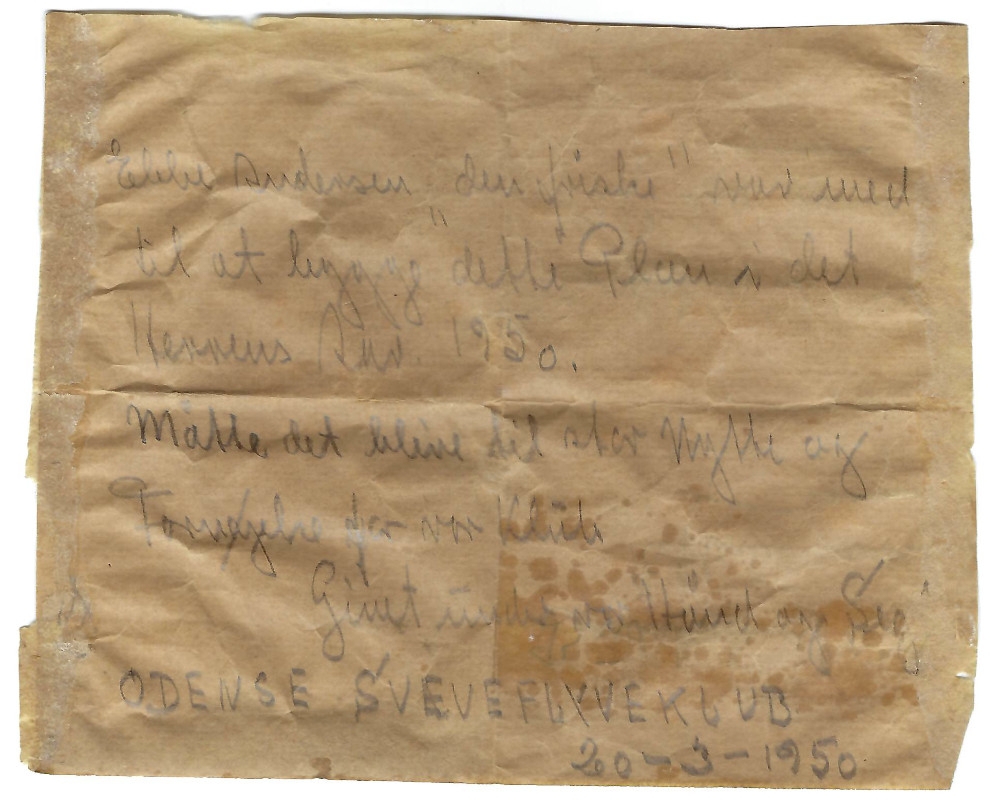 Ebbe Andersen "den friske" var med
til at bygge dette Plan i det
Herrens Aar. 1950.
Måtte det blive til stor Nytte og
Fornøjelse for vor Klub
Givet under vor Hånd og Segl
ODENSE SVÆVEFLYVEKLUB
20-3-1950